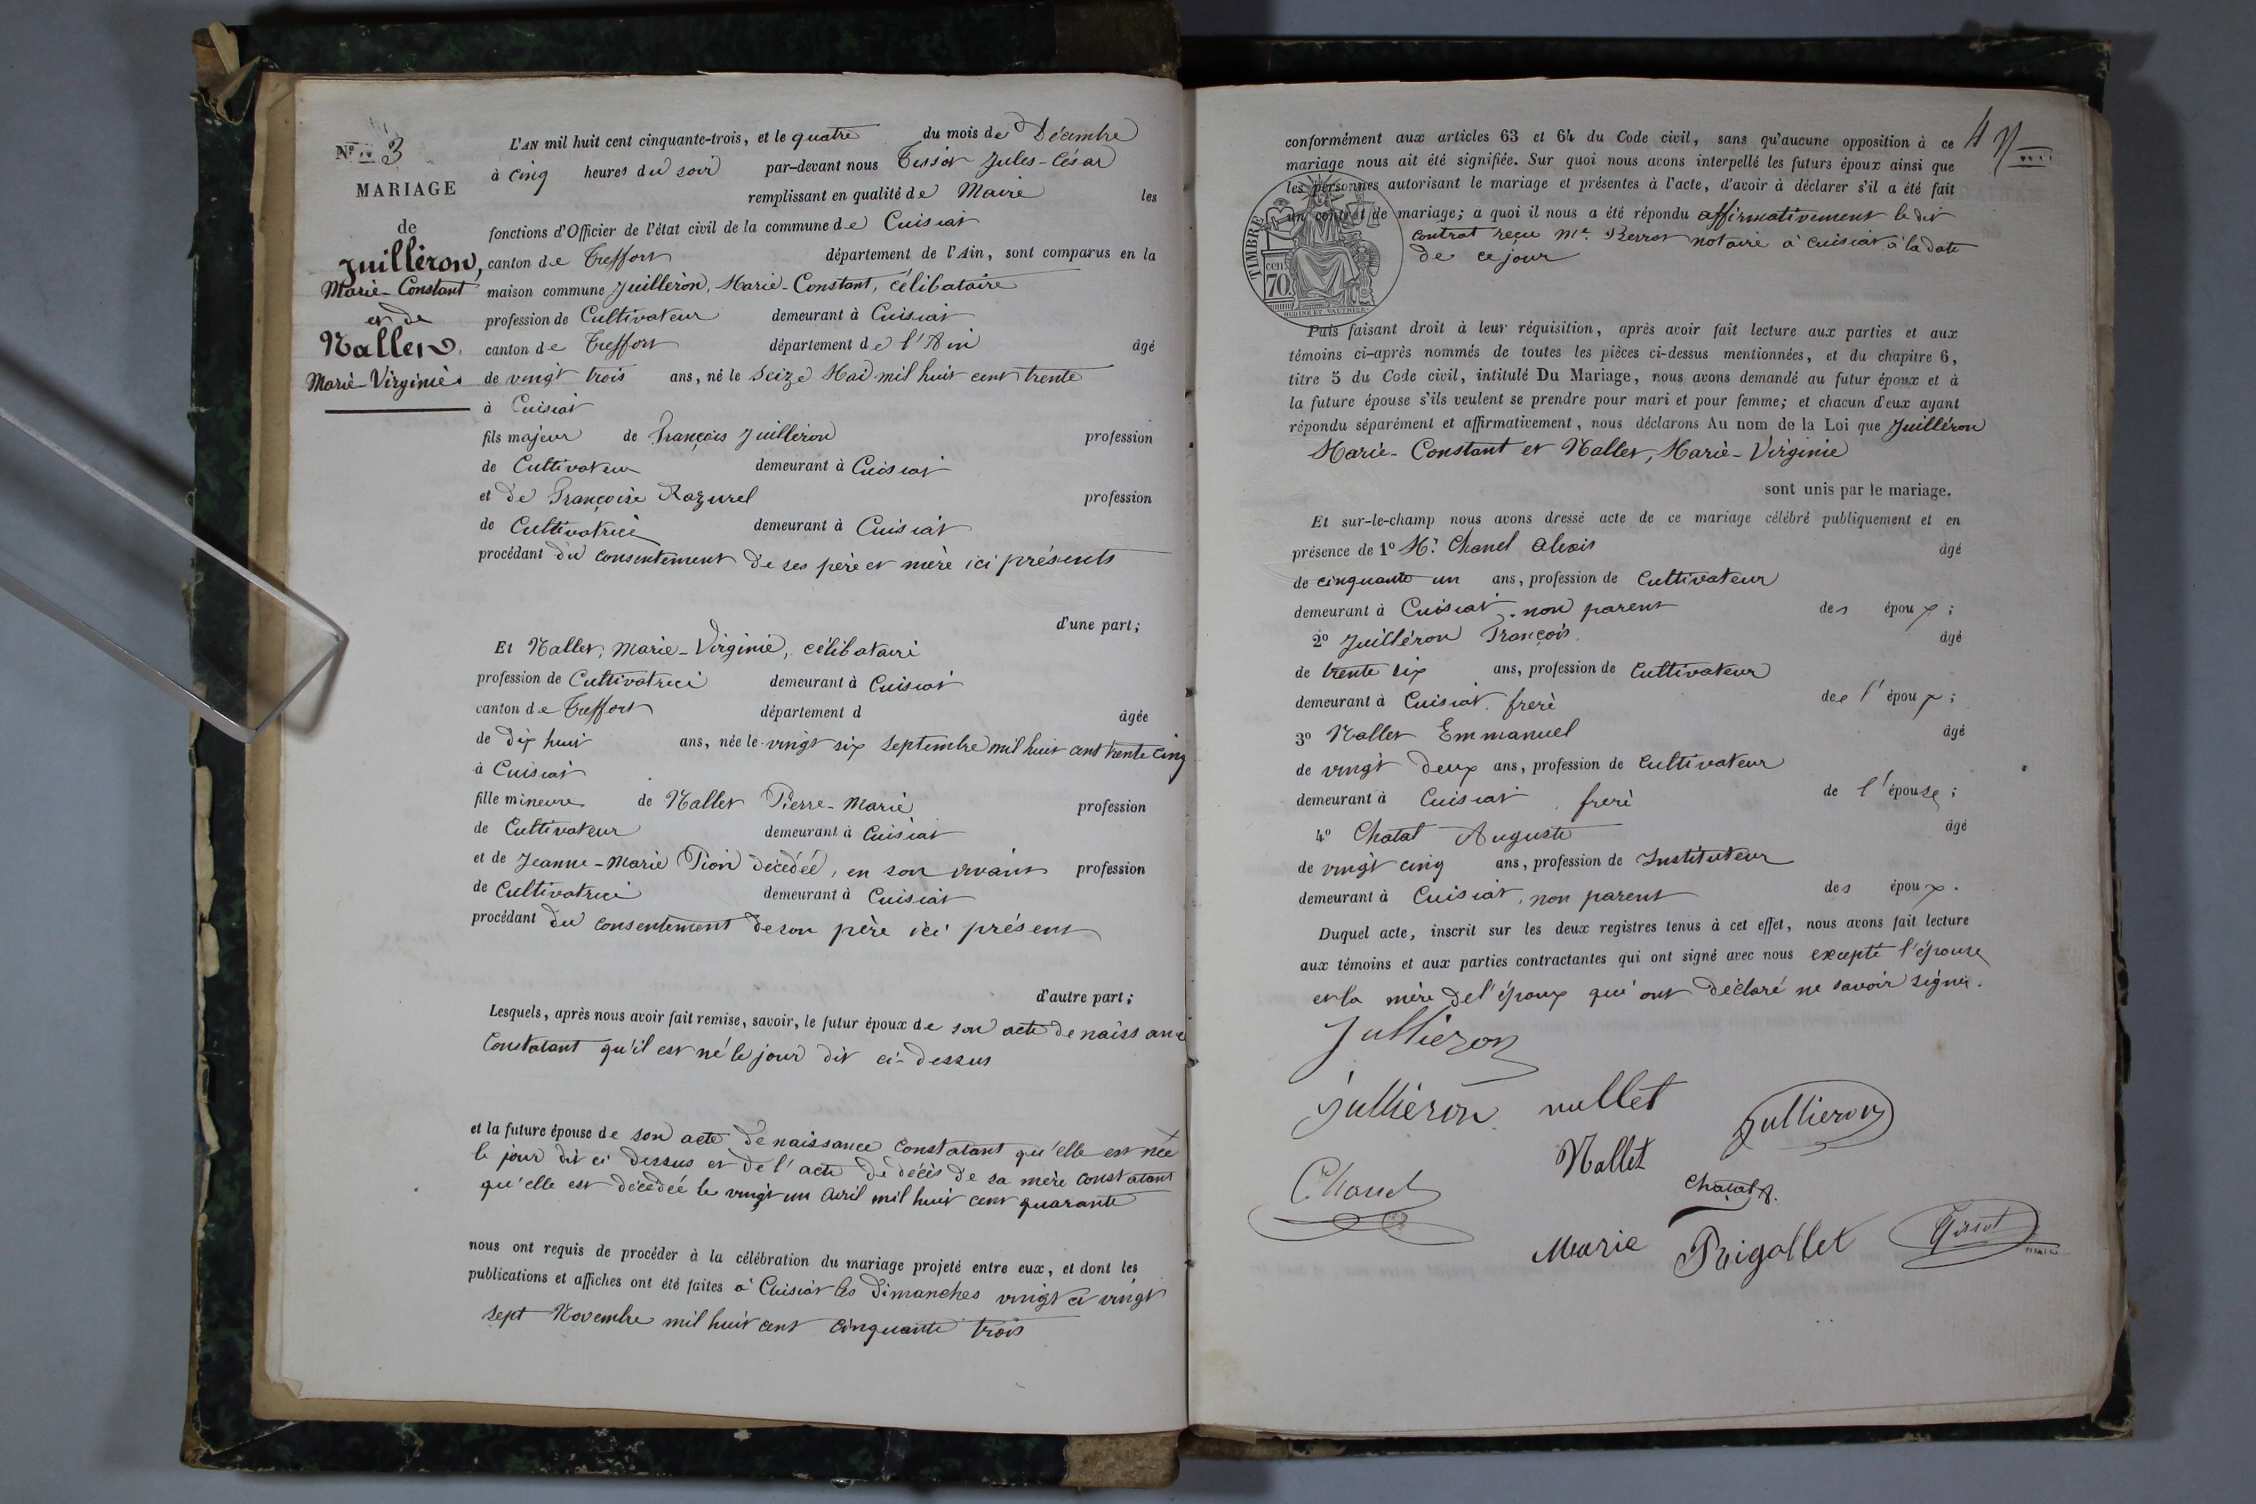 No 3
MARIAGE
de
Juilléron,
Marie-Constant
et de
Nallet,
Marie-Virginie
L'AN mil huit cent cinquante-trois, et le quatre du mois de Décembre
à cinq heures du soir par-devant nous Tissot Jules-César
remplissant en qualité de Maire les
fonctions d'Officier de l'état civil de la commune de Cuisiat
canton de Treffort département de l'Ain, sont comparus en la
maison commune Juilléron, Marie-Constant, célibataire
profession de Cultivateur demeurant à Cuisiat
canton de Treffort département de l'Ain âgé
de vingt trois ans, né le seize Mai mil huit cent trente
à Cuisiat
fils majeur de François Juilléron profession
de Cultivateur demeurant à Cuisiat
et de Françoise Razurel profession
de Cultivatrice demeurant à Cuisiat
procédant du consentement de ses père et mère ici présents
d'une part;
Et Nallet, Marie-Virginie, célibataire
profession de Cultivatrice demeurant à Cuisiat
canton de Treffort département d âgée
de dix huit ans, née le vingt six septembre mil huit cent trente cinq
à Cuisiat
fille mineure de Nallet Pierre-Marie profession
de Cultivateur demeurant à Cuisiat
et de Jeanne-Marie Pion décédée, en son vivant profession
de Cultivatrice demeurant à Cuisiat
procédant du consentement de son père ici présent
d'autre part;
Lesquels, après nous avoir fait remise, savoir, le futur époux de son acte de naissance
Constatant qu'il est né le jour dit ci-dessus
et la future épouse de son acte de naissance constatant qu'elle est née
le jour dit ci dessus et de l'acte de décès de sa mère constatant
qu'elle est décédée le vingt un avril mil huit cent quarante
nous ont requis de procéder à la célébration du mariage projeté entre eux, et dont les
publications et affiches ont été faites à Cuisiat les dimanches vingt et vingt
sept Novembre mil huit cent cinquante trois
4
conformément aux articles 63 et 64 du Code civil, sans qu'aucune opposition à ce
mariage nous ait été signifiée. Sur quoi nous avons interpellé les futurs époux ainsi que
les personnes autorisant le mariage et présentes à l'acte, d'avoir à déclarer s'il a été fait
un contrat de mariage; à quoi il nous a été répondu affirmativement le dit
contrat reçu Me. Perrot notaire à Cuisiat à la date
de ce jour
TIMBRE
cent.
70.
Puis faisant droit à leur réquisition, après avoir fait lecture aux parties et aux
témoins ci-après nommés de toutes les pièces ci-dessus mentionnées, et du chapitre 6,
titre 5 du Code civil, intitulé Du Mariage, nous avons demandé au futur époux et à
la future épouse s'ils veulent se prendre pour mari et pour femme; et chacun d'eux ayant
répondu séparément et affirmativement, nous déclarons Au nom de la Loi que Juilléron
Marie-Constant et Nallet, Marie-Virginie
sont unis par le mariage.
Et sur-le-champ nous avons dressé acte de ce mariage célébré publiquement et en
présence de 1o Mr. Chanel Alexis âgé
de cinquante un ans, profession de Cultivateur
demeurant à Cuisiat, non parent des époux;
2o Juilléron François. âgé
de trente six ans, profession de Cultivateur
demeurant à Cuisiat. frère de l'époux;
3o Nallet Emmanuel âgé
de vingt deux ans, profession de Cultivateur
demeurant à Cuisiat, frère de l'épouse;
4o Chatal Auguste âgé
de vingt cinq ans, profession de Instituteur
demeurant à Cuisiat, non parent des époux.
Duquel acte, inscrit sur les deux registres tenus à cet effet, nous avons fait lecture
aux témoins et aux parties contractantes qui ont signé avec nous excepté l'épouse
et la mère de l'époux qui ont déclaré ne savoir signer.
Jullieron
Jullieron nallet Jullieron
Nallet
Chanel Chatal A.
Marie Prigallet Tissot